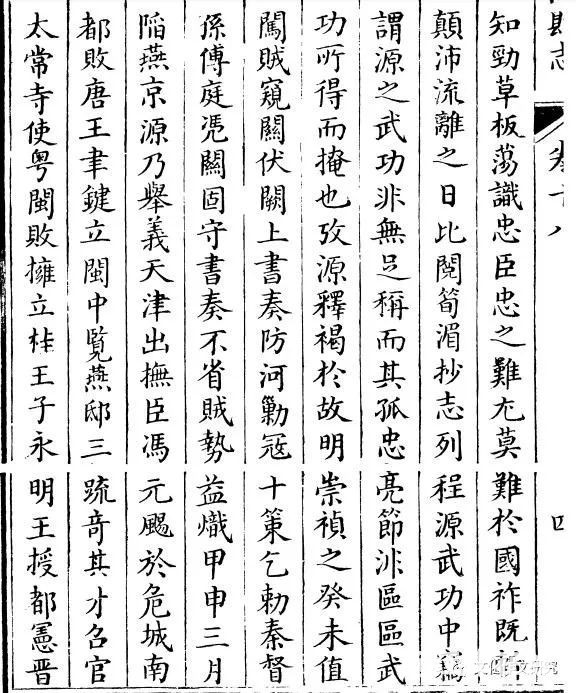 縣志 卷十八 四
知勁草板蕩識忠臣忠之難尤莫難於國祚既
顛沛流離之日比閱筍湄抄志列程源武功中竊
謂源之武功非無足稱而其孤忠亮節非區區武
功所得而掩也攷源釋褐於故明崇禎之癸未值
闖賊窺關伏闕上書奏防河勦寇十策乞勅秦督
孫傳庭凭關固守書奏不省賊勢益熾甲申三月
陷燕京源乃舉義天津出撫臣馮元颺於危城南
都敗唐王聿鍵立閩中覽燕邸三疏竒其才召官
太常寺使粤閩敗擁立桂王子永明王授都憲晋